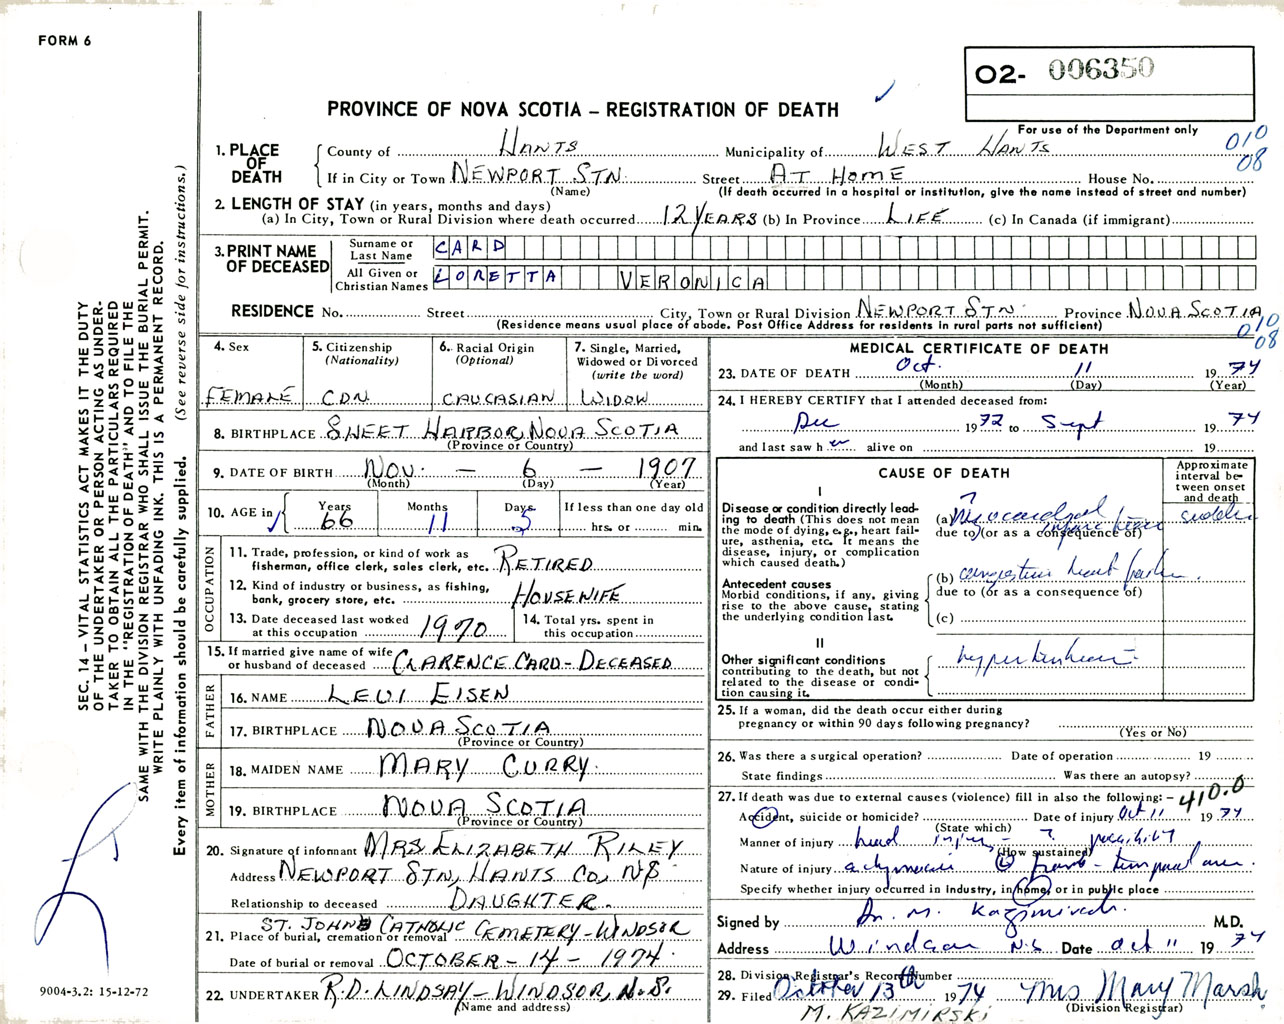 FORM 6
O2- 006350
PROVINCE OF NOVA SCOTIA – REGISTRATION OF DEATH
For use of the Department only
010
08
1. PLACE OF DEATH
County of HANTS Municipality of WEST HANTS
If in City or Town NEWPORT STN. Street AT HOME House No.
(Name) (If death occurred in a hospital or institution, give the name instead of street and number)
2. LENGTH OF STAY (in years, months and days)
(a) In City, Town or Rural Division where death occurred 12 YEARS (b) In Province LIFE (c) In Canada (if immigrant)
3. PRINT NAME OF DECEASED
Surname or Last Name CARD
All Given or Christian Names LORETTA VERONICA
RESIDENCE No. Street City, Town or Rural Division NEWPORT STN. Province NOVA SCOTIA
(Residence means usual place of abode. Post Office Address for residents in rural parts not sufficient)
010
08
4. Sex
FEMALE
5. Citizenship
(Nationality)
CDN.
6. Racial Origin
(Optional)
CAUCASIAN
7. Single, Married,
Widowed or Divorced
(write the word)
WIDOW
8. BIRTHPLACE SHEET HARBOR, NOVA SCOTIA
(Province or Country)
9. DATE OF BIRTH NOV. – 6 – 1907
(Month) (Day) (Year)
10. AGE in
Years Months Days If less than one day old
66 11 5 hrs. or min.
OCCUPATION
11. Trade, profession, or kind of work as
fisherman, office clerk, sales clerk, etc. RETIRED
12. Kind of industry or business, as fishing,
bank, grocery store, etc. HOUSEWIFE
13. Date deceased last worked
at this occupation 1970
14. Total yrs. spent in
this occupation
15. If married give name of wife
or husband of deceased CLARENCE CARD - DECEASED
FATHER
16. NAME LEVI EISEN
17. BIRTHPLACE NOVA SCOTIA
(Province or Country)
MOTHER
18. MAIDEN NAME MARY CURRY.
19. BIRTHPLACE NOVA SCOTIA
(Province or Country)
20. Signature of informant MRS ELIZABETH RILEY
Address NEWPORT STN, HANTS CO, N.S
Relationship to deceased DAUGHTER.
ST. JOHNS CATHOLIC CEMETERY - WINDSOR
21. Place of burial, cremation or removal
Date of burial or removal OCTOBER - 14 - 1974.
22. UNDERTAKER R.D. LINDSAY - WINDSOR, N.S.
(Name and address)
MEDICAL CERTIFICATE OF DEATH
23. DATE OF DEATH Oct. 11 1974
(Month) (Day) (Year)
24. I HEREBY CERTIFY that I attended deceased from:
Dec 1972 to Sept 1974
and last saw h er alive on 19
CAUSE OF DEATH
Approximate interval between onset and death
I
Disease or condition directly leading to death (This does not mean the mode of dying, e.g., heart failure, asthenia, etc. It means the disease, injury, or complication which caused death.)
?
(a) Myocardial sudden
due to (or as a consequence of)
Antecedent causes
Morbid conditions, if any, giving rise to the above cause, stating the underlying condition last.
(b) congestive heart failure.
due to (or as a consequence of)
(c)
II
Other significant conditions
contributing to the death, but not related to the disease or condition causing it.
hypertension
25. If a woman, did the death occur either during
pregnancy or within 90 days following pregnancy?
(Yes or No)
26. Was there a surgical operation? Date of operation 19
State findings Was there an autopsy?
27. If death was due to external causes (violence) fill in also the following: - 410.0
Accident, suicide or homicide? Date of injury Oct 11 1974
(State which)
Manner of injury head injury - ?
(How sustained)
Nature of injury
Specify whether injury occurred in Industry, in home, or in public place
Signed by Dr. M. Kazimirski M.D.
Address Windsor N.S. Date Oct 11 1974
28. Division Registrar's Record Number
29. Filed October 13th 1974 Mrs Mary Marsh
(Division Registrar)
M. KAZIMIRSKI
SEC. 14 – VITAL STATISTICS ACT MAKES IT THE DUTY
OF THE UNDERTAKER OR PERSON ACTING AS UNDER-
TAKER TO OBTAIN ALL THE PARTICULARS REQUIRED
IN THE "REGISTRATION OF DEATH" AND TO FILE THE
SAME WITH THE DIVISION REGISTRAR WHO SHALL ISSUE THE BURIAL PERMIT.
WRITE PLAINLY WITH UNFADING INK. THIS IS A PERMANENT RECORD.
Every item of information should be carefully supplied. (See reverse side for instructions.)
9004-3.2: 15-12-72